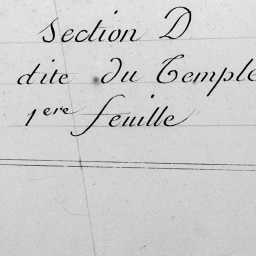 Section D
dite du Temple
1ere feuille